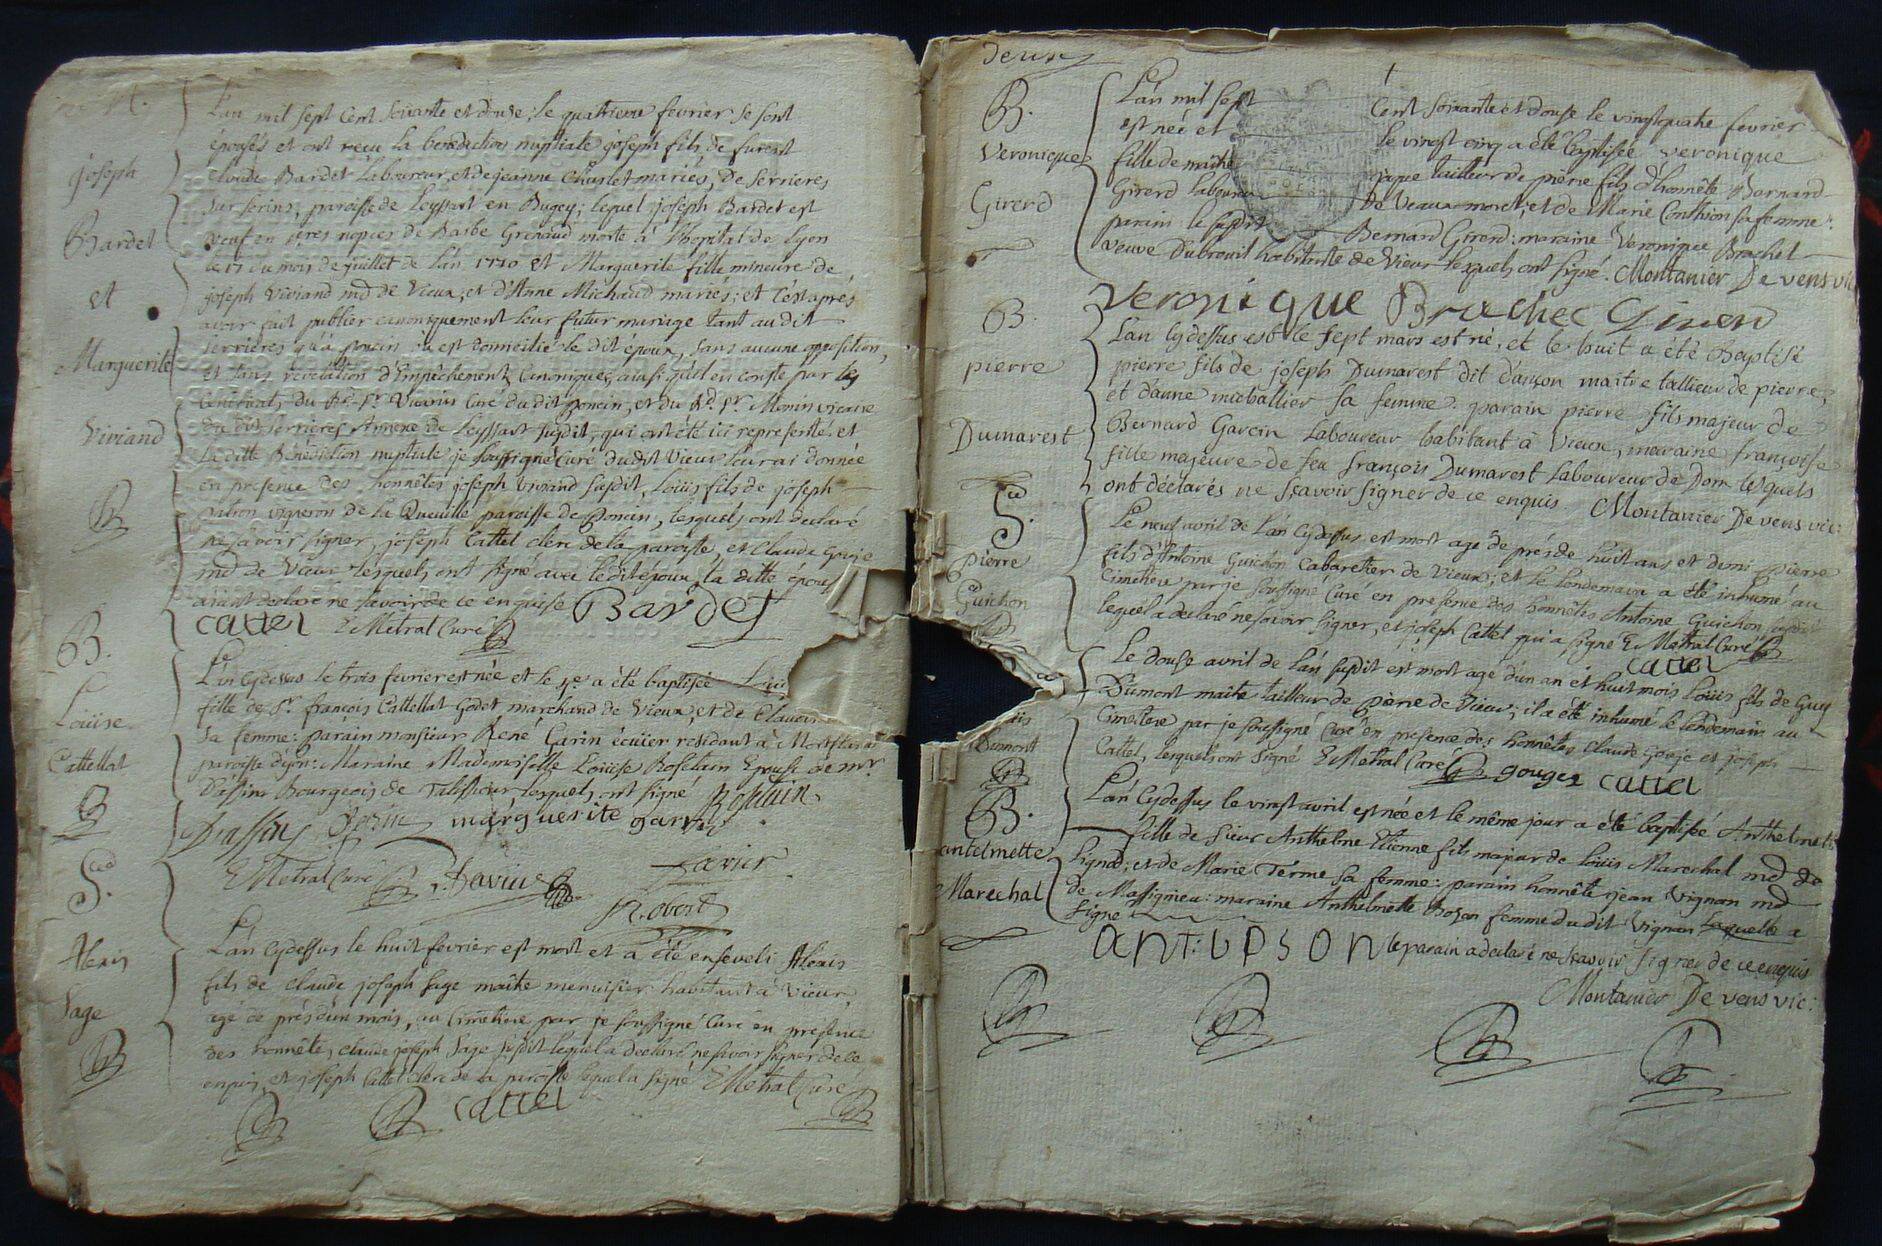 M.
joseph
Bardet
et
Marguerite
Viviand
L'an mil sept cent soixante et douse, le quatrieme fevrier se sont
épousés et ont reçu la benediction nuptiale joseph fils de furent
Claude Bardet Laboureur, et de jeanne Charlet mariés, de Serrieres
sur serins, paroisse de Leyssart en Bugey; lequel joseph Bardet est
veuf en 1eres nopces de Barbe Grenaud morte à l'hopital de Lyon
le 17 du mois de juillet de l'an 1770 et Marguerite fille mineure de
joseph Viviand md de Vieux, et d'Anne Michaud mariés; et c'est après
avoir fait publier canoniquement leur futur mariage tant au dit
Serrières qu'à poncin où est domicilié le dit époux, sans aucune opposition,
et sans revelation d'Empêchement Canonique, ainsi qu'il en conste par les
Certificats du Rd Sr Vicarius Curé du dit poncin, et du Rd Sr Monin vicaire
du dit Serrières Annexe de Leyssart susdit, qui ont été ici representés et
La ditte Bénédiction nuptiale je soussigné Curé dudit Vieux leur ai donnée
en presence des honnêtes joseph Viviand susdit, Loüis fils de joseph
vigneron de la Queuille paroisse de Poncin, lesquels ont declaré
ne sçavoir signer, joseph Cattel clerc de la paroisse, et Claude Gouje
md de Vieux lesquels ont signé avec le dit époux, la ditte épouse
aiant declaré ne savoir de ce enquise Bardet
cattel E Metral Curé
B.
Loüise
Cattellat
L'an cydessus le trois fevrier est née et le 4e a été baptisée Loüi
fille de Sr françois Cattellat Godet marchand de Vieux, et de Claudin
sa femme: parain monsieur René Garin écuïer residant à
paroisse d'yon: Maraine Mademoiselle Loüise Roselain Epouse de mr
D'assin Bourgeois de Talissieu lesquels ont signé Roselain
Dassin Garin marguerite garin
E Metral Curé Favier Favier
Robert
Sre
Alexis
Sage
L'an cydessus le huit fevrier est mort et a été enseveli Alexis
fils de Claude joseph Sage maître menuisier habitant à Vieux,
agé de près d'un mois, au Cimetiere par je soussigné Curé en presence
des honnêtes Claude joseph Sage susdit lequel a declaré ne savoir signer de ce
enquis, et joseph Cattel clerc de la paroisse lequel a signé E Metral Curé
cattel
deux
B.
Veronique
Girerd
L'an mil sept Cent soixante et douse le vingt quatre fevrier
est née et le vingt cinq a été baptisée Veronique
fille de maître tailleur de pierre fils d'honnête Bernard
Girerd laboureur de Veaux moret, et de Marie Conthion sa femme:
parain le susdit Bernard Girerd: maraine Veronique Brachet
veuve Dubreuil habitante de Vieux lesquels ont signé. Montanier De vens vic
Veronique Brachet Girerd
B.
pierre
Dumarest
L'an cydessus est le sept mars est né, et le huit a été Baptisé
pierre fils de joseph Dumarest dit d'ançon maitre tallieur de pierre,
et d'anne micballier sa femme. parain pierre fils majeur de
Bernard Garcin Laboureur habitant à Vieux, maraine françoise
fille majeure de feu françois Dumarest Laboureur de Don lesquels
ont déclarés ne sçavoir signer de ce enquis Montanier De vens vic:
Sre
pierre
Guichon
Le neuf avril de l'an cydessus est mort age de près de huit ans et demi pierre
fils d'Antoine Guichon Cabaretier de Vieux; et le lendemain a été inhumé au
Cimetiere par je soussigné Curé en presence des honnêtes Antoine Guichon susdit
lequel a declaré ne savoir signer, et joseph Cattel qui a signé E Metral Curé
cattel
Dumont
Le douse avril de l'an susdit est mort agé d'un an et huit mois Loüis fils de Guy
Dumont maitre tailleur de pierre de Vieux; il a été inhumé le lendemain au
Cimetiere par je soussigné Curé en presence des honnêtes Claude Gouje et joseph
Cattel, lesquels ont signé E Metral Curé gouges cattel
B.
antelmette
Marechal
L'an cydessus le vingt avril est née et le même jour a été baptisée Anthelmette
fille de Sieur Anthelme Etienne fils majeur de Loüis Marechal md de
Lignod; et de Marie Terme sa femme: parain honnête jean Vignan md
de Massignieu: maraine Anthelmette Boson femme du dit Vignan laquelle a
signé
ANT: BOSON le parain a declaré ne sçavoir signer de ce enquis
Montanier De vens vic: